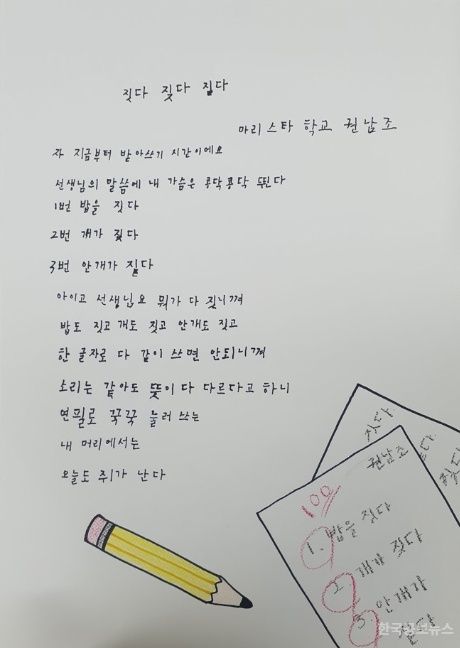 짓다 짖다 짙다
마리스타 학교 권남조
자 지금부터 받아쓰기 시간이에요
선생님의 말씀에 내 가슴은 콩닥콩닥 뛴다
1번 밥을 짓다
2번 개가 짖다
3번 안개가 짙다
아이고 선생님요 뭐가 다 짓니껴
밥도 짓고 개도 짓고 안개도 짓고
한 글자로 다 같이 쓰면 안되니껴
소리는 같아도 뜻이 다 다르다고 하니
연필로 꾹꾹 눌러 쓰는
내 머리에서는
오늘도 쥐가 난다
짓다
권남조
100
1. 밥을 짓다
2. 개가 짖다
3 안개가
짙다
한국공보뉴스